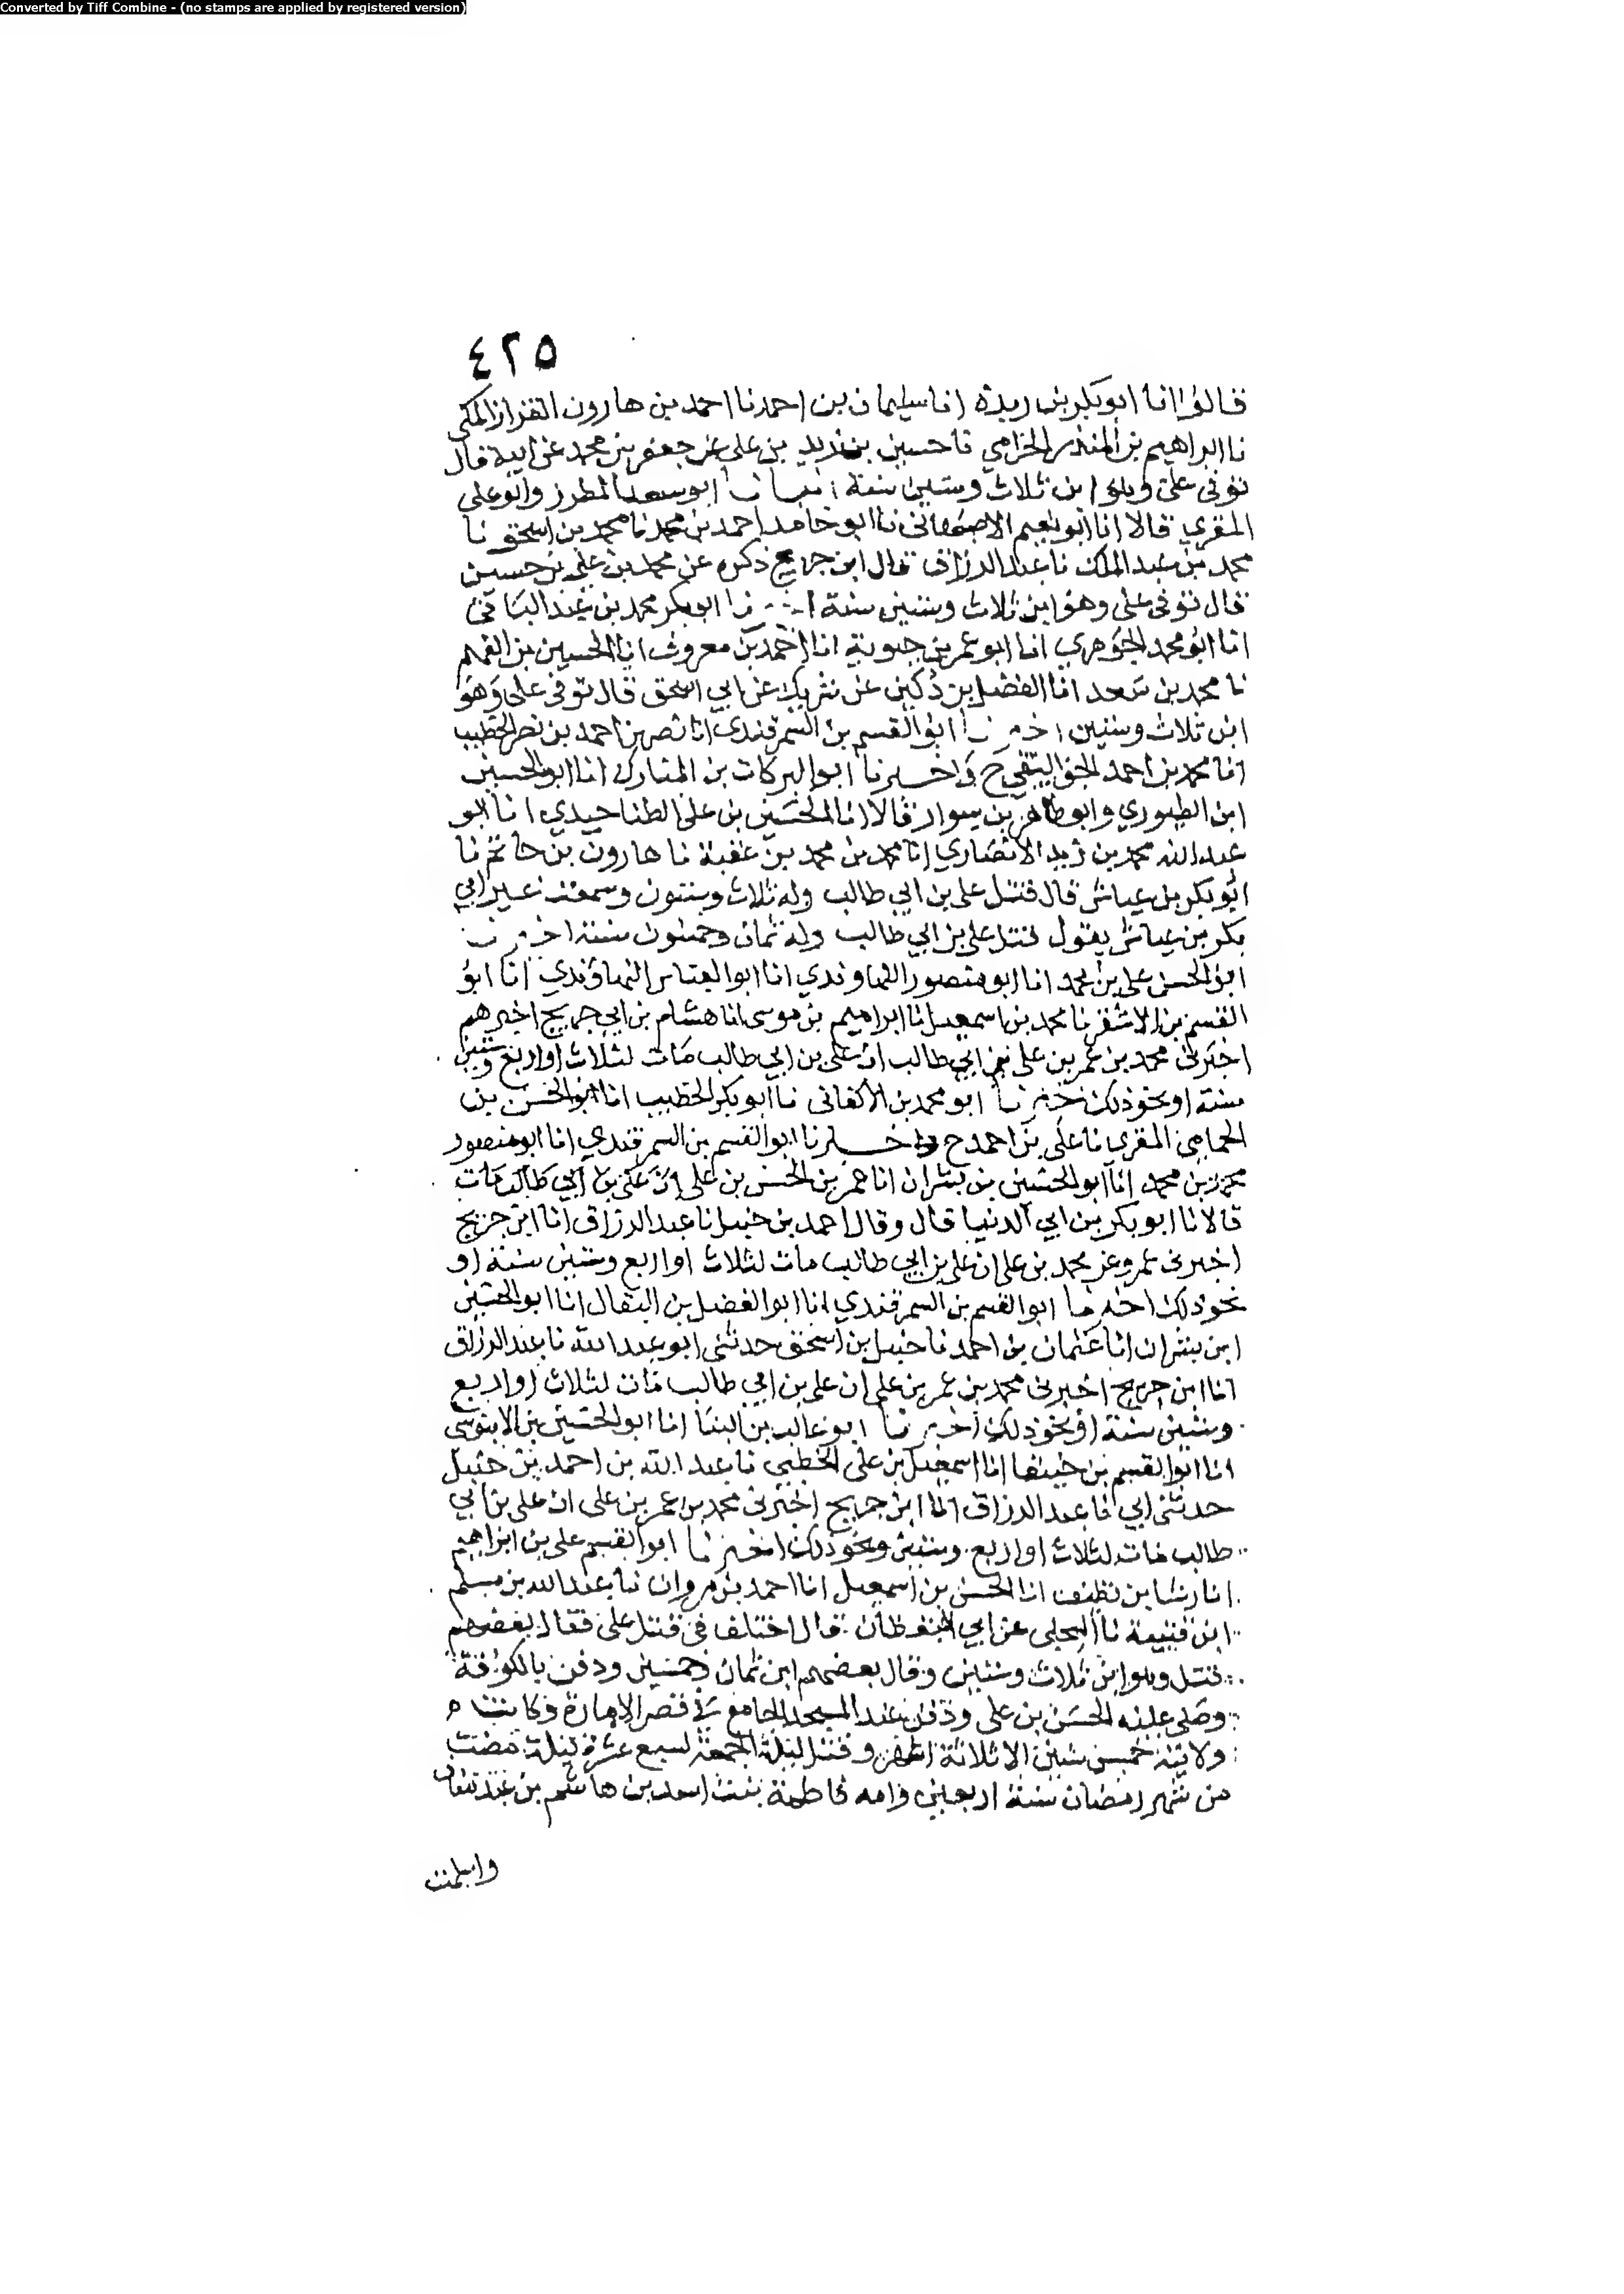 Converted by Tiff Combine - (no stamps are applied by registered version)
٤٢٥
قالوا انا ابو بكر بن ريذة انا سليمان بن احمد نا احمد بن هارون القزاز المكي
نا ابراهيم بن المنذر الحزامي نا حسين بن زيد بن علي عن جعفر بن محمد عن ابيه قال
توفي علي وهو ابن ثلاث وستين سنة انبانا ابو سعد المطرز وابو علي
المقري قالا انا ابو نعيم الاصفهاني نا ابو حامد احمد بن محمد نا محمد بن اسحق نا
محمد بن عبد الملك نا عبد الرزاق قال ابن جريج ذكره عن محمد بن علي بن حسين
قال توفي علي وهو ابن ثلاث وستين سنة ابو بكر محمد بن عبد الباقي
انا ابو محمد الجوهري انا ابو عمر بن حيوية انا احمد بن معروف انا الحسين بن الفهم
نا محمد بن سعد انا الفضل بن دكين عن شريك عن ابي اسحق قال توفي علي وهو
ابن ثلاث وستين اخبرنا ابو القسم بن السمرقندي انا نصر بن احمد بن نصر الخطيب
انا محمد بن احمد الجواليقي ح واخبرنا ابو البركات بن المبارك انا ابو الحسين
ابن الطيوري وابو طاهر بن سوار قالا انا الحسين بن علي الطناجيري انا ابو
عبد الله محمد بن زيد الانصاري انا محمد بن محمد بن عقبة نا هارون بن حاتم نا
ابو بكر بن عياش قال قتل علي بن ابي طالب وله ثلاث وستون وسمعت غير ابي
بكر بن عياش يقول قتل علي بن ابي طالب وله ثمان وخمسون سنة اخبرنا
ابو الحسن علي بن محمد انا ابو منصور النهاوندي انا ابو العباس النهاوندي انا ابو
القسم بن الاشقر نا محمد بن اسمعيل نا ابراهيم بن موسى انا هشام بن ابي جريج اخبرهم
اخبرني محمد بن عمر بن علي بن ابي طالب ان علي بن ابي طالب مات لثلاث او اربع وستين
سنة او نحو ذلك اخبرنا ابو محمد بن الاكفاني نا ابو بكر الخطيب انا ابو الحسن بن
الحمامي المقري نا علي بن احمد ح واخبرنا ابو القسم بن السمرقندي انا ابو منصور
محمد بن محمد انا ابو الحسين بن بشران انا عمر بن الحسن بن علي ان علي بن ابي طالب مات
قالا نا ابو بكر بن ابي الدنيا قال وقال احمد بن حنبل نا عبد الرزاق انا ابن جريج
اخبرني عمرو عن محمد بن علي ان علي بن ابي طالب مات لثلاث او اربع وستين سنة او
نحو ذلك اخبرنا ابو القسم بن السمرقندي انا ابو الفضل بن البقال انا ابو الحسين
ابن بشران انا عثمان بن احمد نا حنبل بن اسحق حدثني ابو عبد الله نا عبد الرزاق
انا ابن جريج اخبرني محمد بن عمر بن علي ان علي بن ابي طالب مات لثلاث او اربع
وستين سنة او نحو ذلك اخبرنا ابو غالب بن البنا انا ابو الحسين بن الابنوسي
انا ابو القسم بن جنيقا انا اسمعيل بن علي الخطبي نا عبد الله بن احمد بن حنبل
حدثني ابي نا عبد الرزاق انا ابن جريج اخبرني محمد بن عمر بن علي ان علي بن ابي
طالب مات لثلاث او اربع وستين ونحو ذلك اخبرنا ابو القسم علي بن ابراهيم
انا رشا بن نظيف انا الحسن بن اسمعيل انا احمد بن مروان نا عبد الله بن مسلم
ابن قتيبة نا البجلي عن ابي اليقظان قال اختلف في قتل علي فقال بعضهم
قتل وهو ابن ثلاث وستين وقال بعضهم ابن ثمان وخمسين ودفن بالكوفة
وصلى عليه الحسن بن علي ودفن عند المسجد الجامع في قصر الامارة وكانت
ولايته خمس سنين الا ثلاثة اشهر وقتل ليلة الجمعة لسبع عشرة ليلة مضت
من شهر رمضان سنة اربعين وامه فاطمة بنت اسد بن هاشم بن عبد مناف
واسلمت